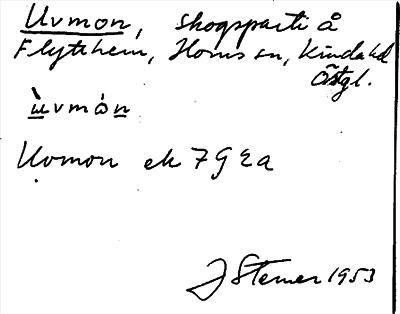 Uvmon, skogsparti å
Flythem, Horns sn, Kinda hd
Östgl.
ùvmón
Uvmon ek 7 G 2a
J Stemer 1953